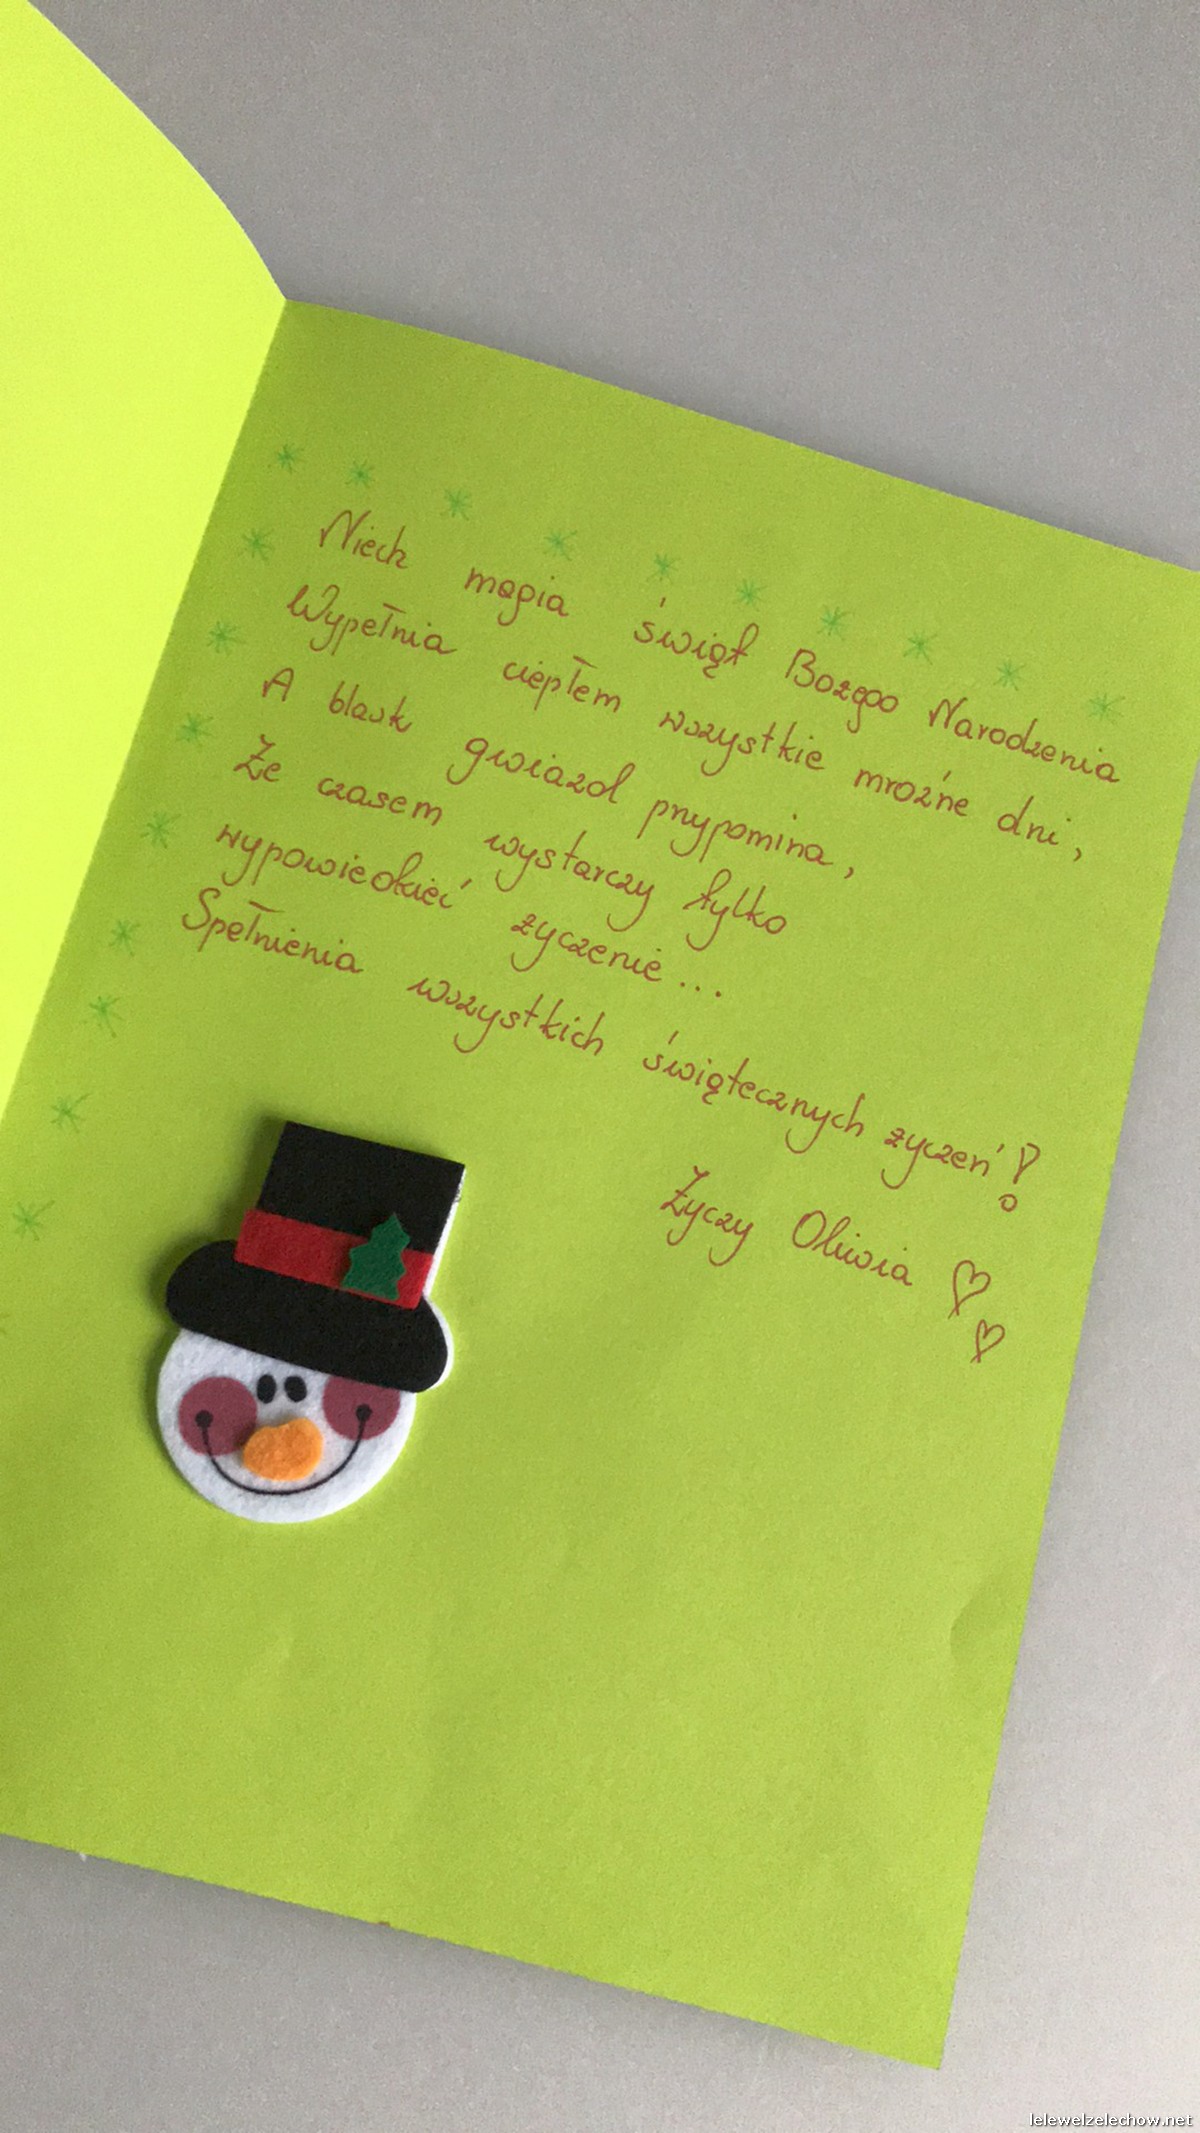 Niech magia świąt Bożego Narodzenia
Wypełnia ciepłem wszystkie mroźne dni,
A blask gwiazd przypomina,
Że czasem wystarczy tylko
wypowiedzieć życzenie...
Spełnienia wszystkich świątecznych życzeń!
Życzy Oliwia ♡
♡
lelewelzelechow.net